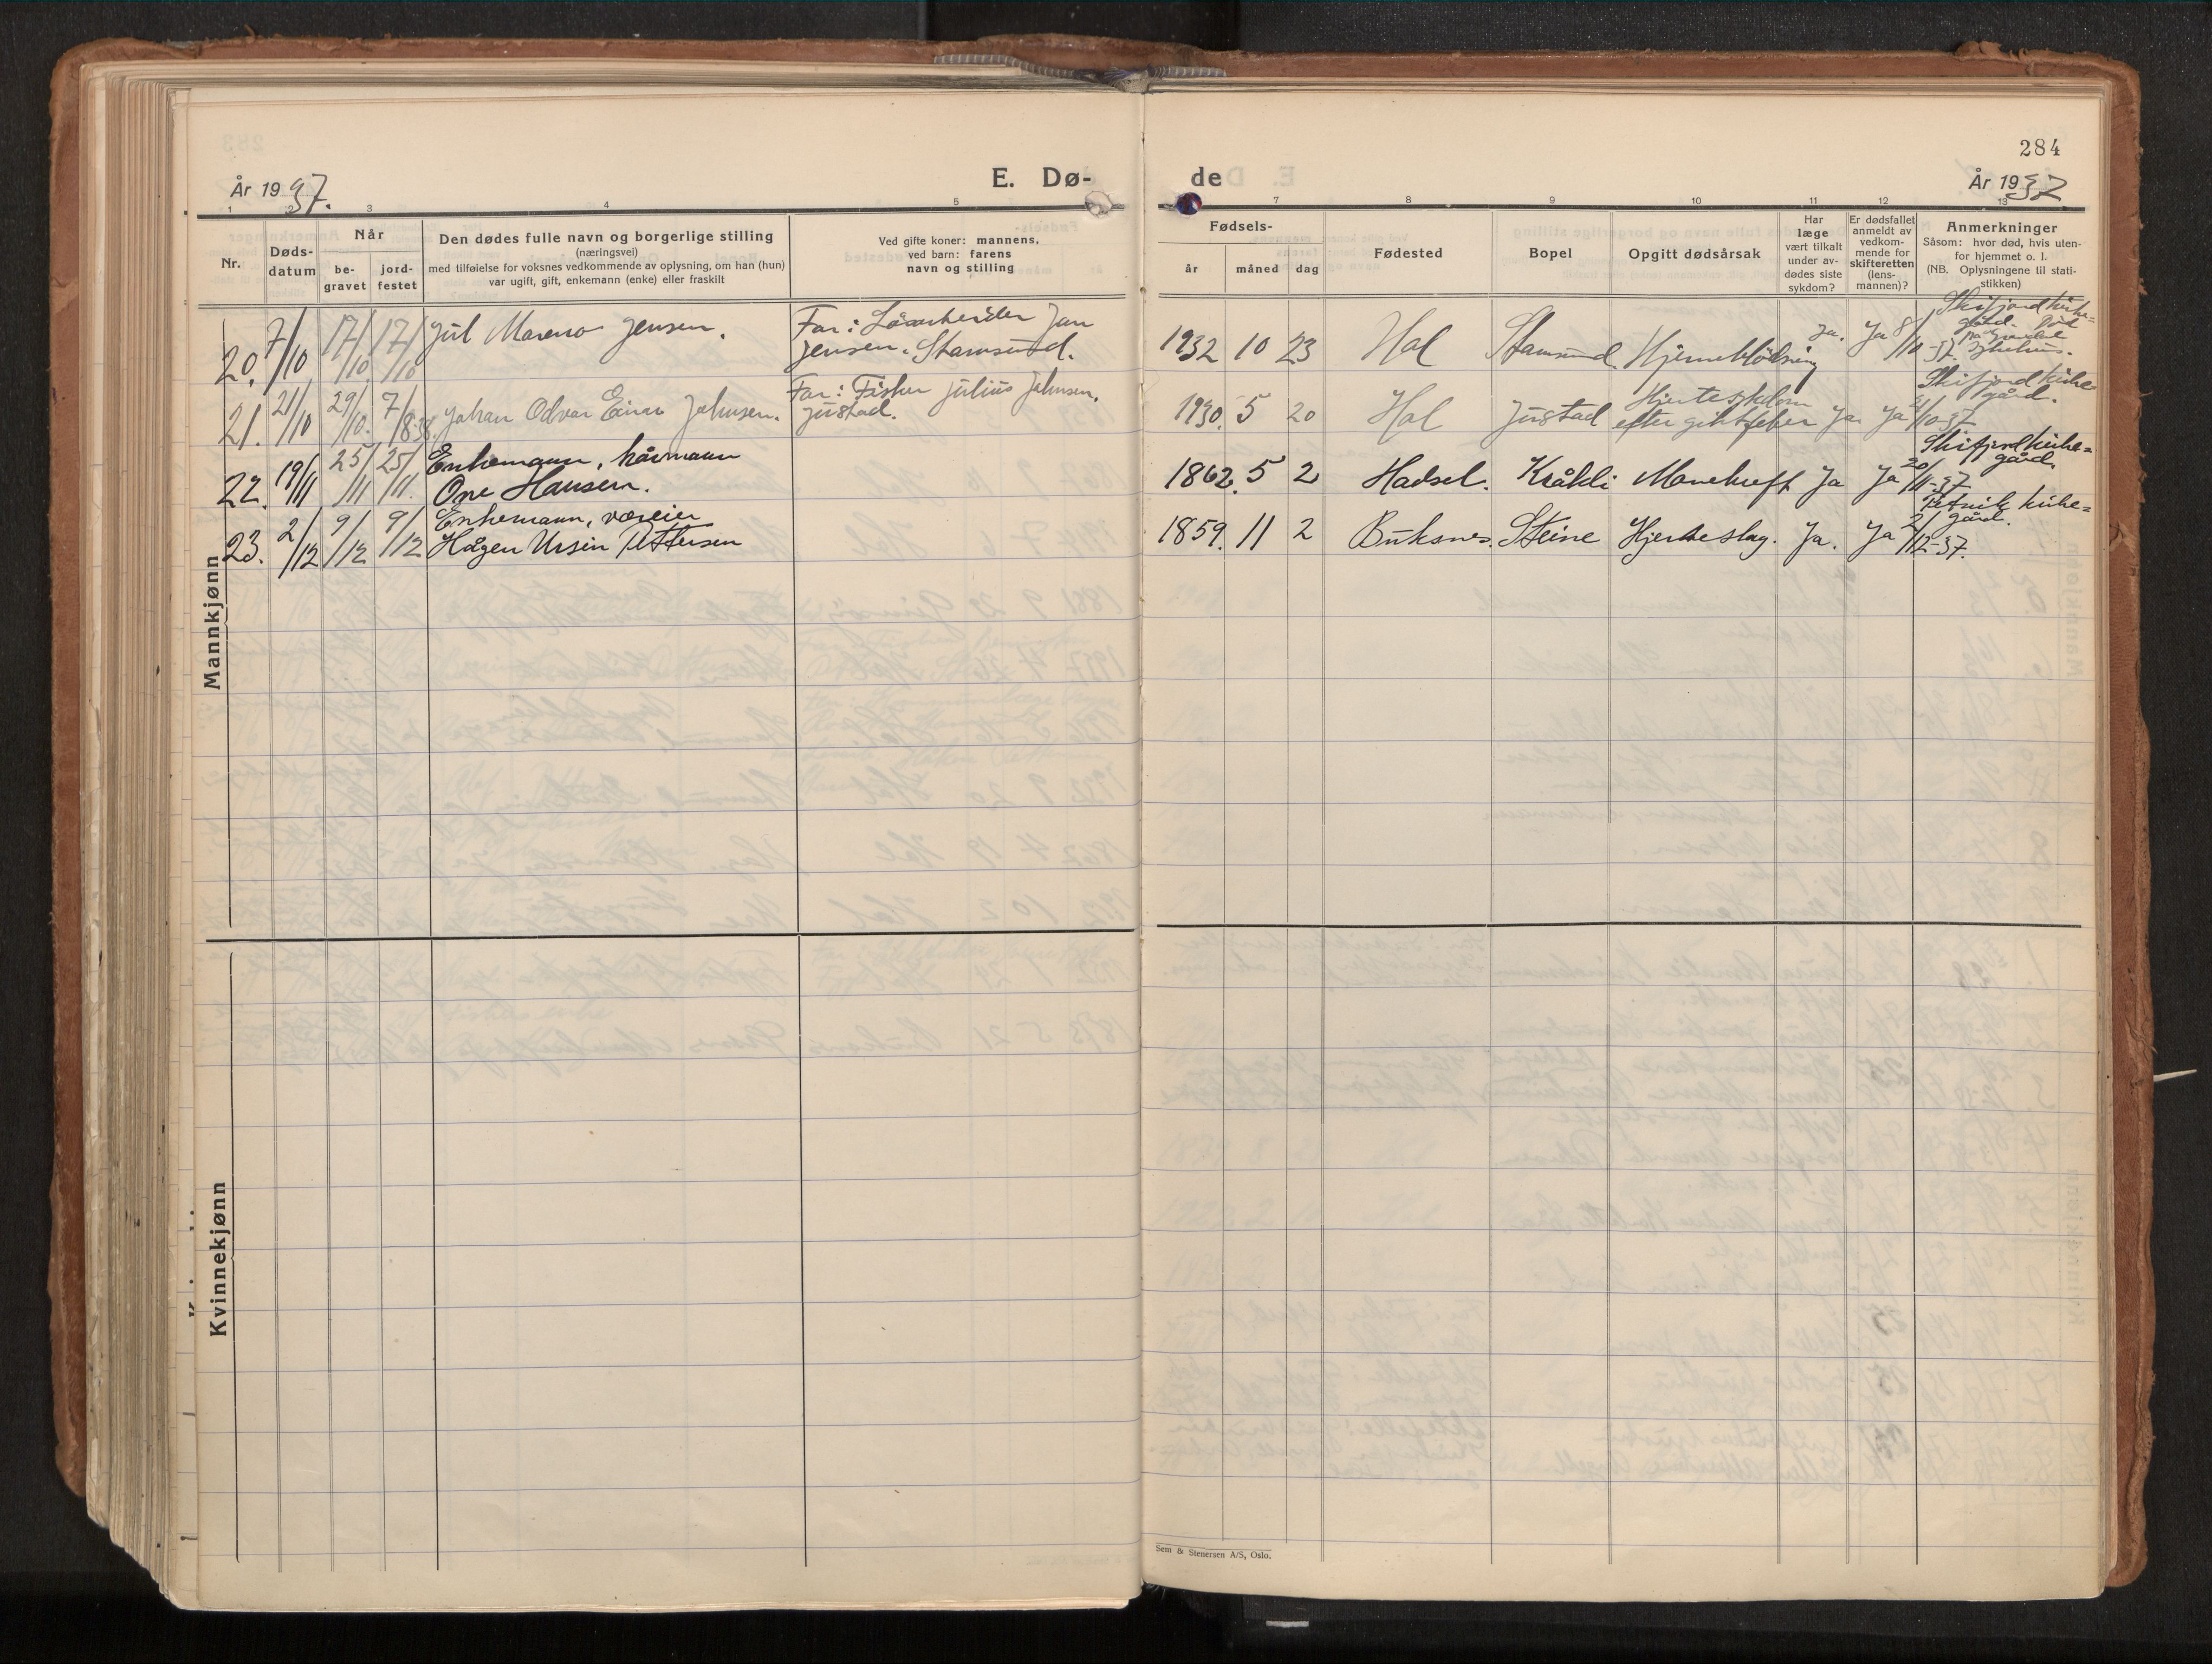 284
År 1937.
E. Dø-
de
År 1937.
1 2 3 4 5
7 8 9 10 11 12 13
Nr.
Døds-
datum
Når
be-
gravet
jord-
festet
Den dødes fulle navn og borgerlige stilling
(næringsvei)
med tilføielse for voksnes vedkommende av oplysning, om han (hun)
var ugift, gift, enkemann (enke) eller fraskilt
Ved gifte koner: mannens,
ved barn: farens
navn og stilling
Fødsels-
år måned dag
Fødested
Bopel
Opgitt dødsårsak
Har
læge
vært tilkalt
under av-
dødes siste
sykdom?
Er dødsfallet
anmeldt av
vedkom-
mende for
skifteretten
(lens-
mannen)?
Anmerkninger
Såsom: hvor død, hvis uten-
for hjemmet o. l.
(NB. Oplysningene til stati-
stikken)
Mannkjønn
20. 7/10 17/10 17/10 Jul Mareno Jensen.
Far: Løsarbeider Jan
Jensen. Stamsund.
1932 10 23 Hol Stamsund Hjerneblödning Ja. Ja 8/10 -37.
Skifjord kirke=
gård. Död
på Gravdal
sykehus.
21. 21/10 29/10. 7/8.38. Johan Odvar Einar Johnsen.
Far: Fisker Julius Johnsen.
Justad.
1930. 5 20 Hol Justad Hjertesykdom
efter giktfeber Ja Ja 21/10-37
Skifjord kirke
gård.
22. 19/11 25/11 25/11. Enkemann, kårmann
One Hansen.
1862. 5 2 Hadsel. Kråkli Marekreft Ja Ja 20/11-37
Skifjord kirke=
gård.
23. 2/12 9/12 9/12 Enkemann, væreier
Hågen Ursin Pettersen
1859. 11 2 Buksnes. Steine Hjerteslag. Ja. Ja 2/12-37.
Petvik kirke=
gård.
Kvinnekjønn
Sem & Stenersen A/S, Oslo.